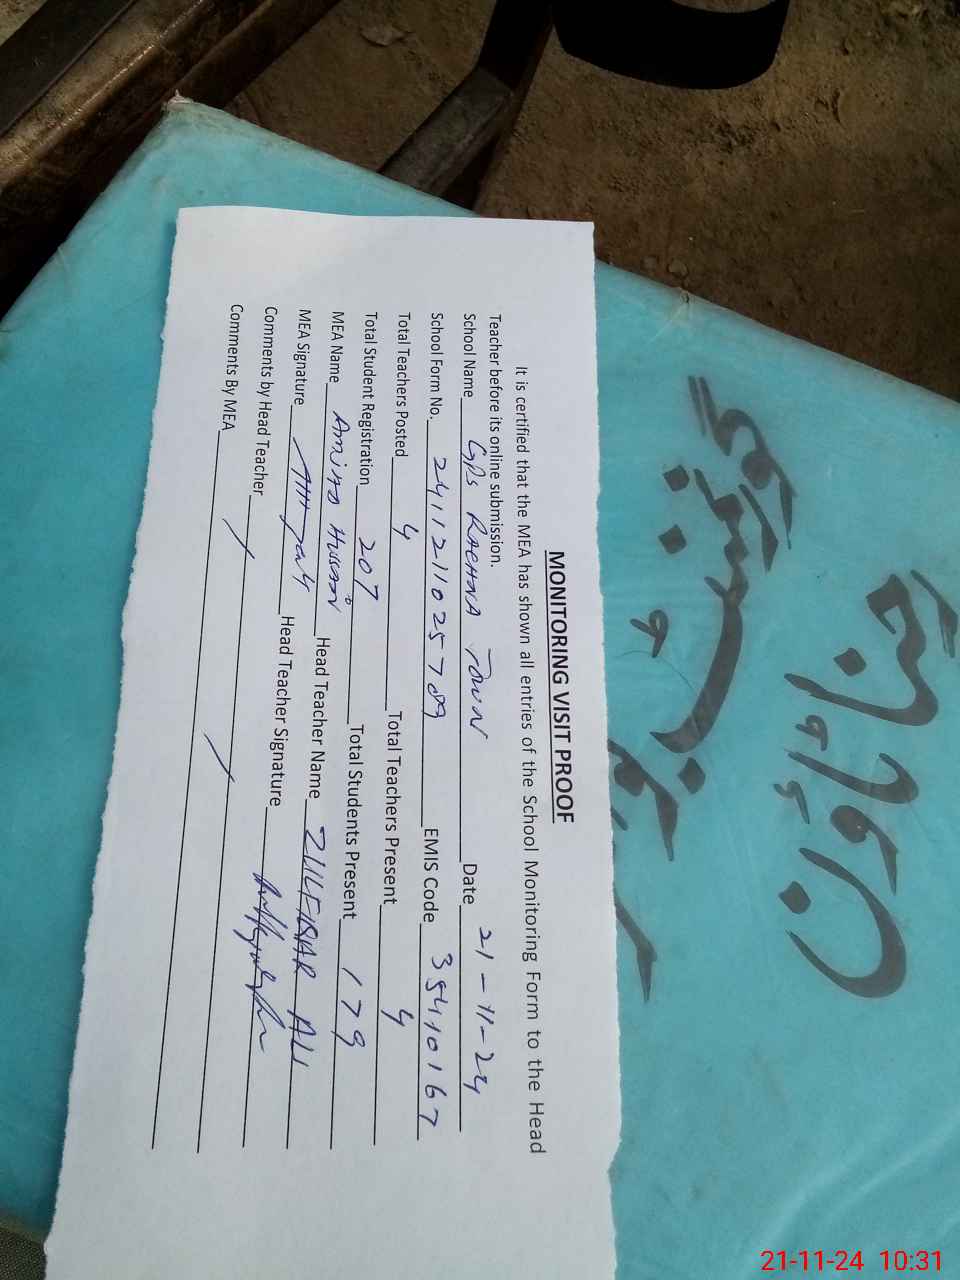 MONITORING VISIT PROOF
It is certified that the MEA has shown all entries of the School Monitoring Form to the Head
Teacher before its online submission.
School Name GPS RACHNA TOWN Date 21-11-24
School Form No. 241121102578 EMIS Code 35410167
Total Teachers Posted 4 Total Teachers Present 4
Total Student Registration 207 Total Students Present 179
MEA Name Hussan Head Teacher Name ZULFIQAR ALI
MEA Signature Head Teacher Signature
Comments by Head Teacher
Comments By MEA
گورنمنٹ
رچنا ٹاؤن
21-11-24 10:31